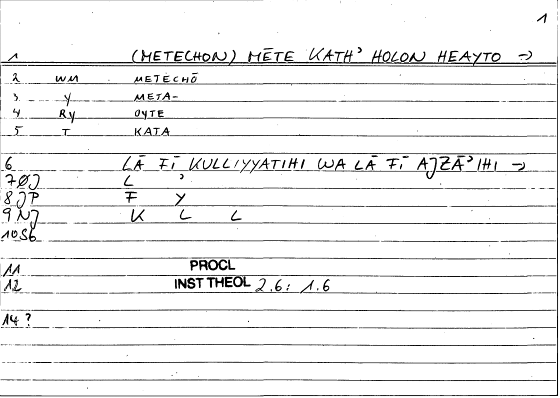 1
1 (METECHON) MĒTE KATH' HOLON HEAYTO →
2 WM METECHŌ
3 Y META-
4 RY OYTE
5 T KATA
6 LĀ FĪ KULLIYYATIHI WA LĀ FĪ AJZĀ'IHI →
7 ØJ L '
8 JP F Y
9 NJ K L L
10 S6
11 PROCL
12 INST THEOL 2.6: 1.6
14 ?